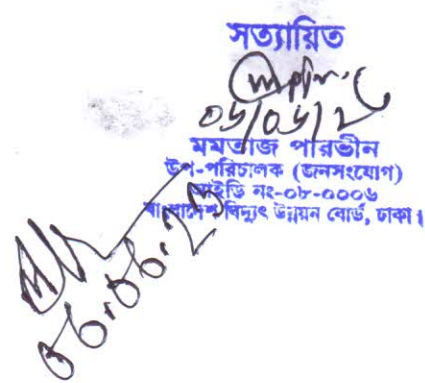 সত্যায়িত
মমতাজ পারভীন
উপ-পরিচালক (জনসংযোগ)
আইডি নং-০৮-০০০৬
বাংলাদেশ বিদ্যুৎ উন্নয়ন বোর্ড, ঢাকা।
০৬.০৬.২১